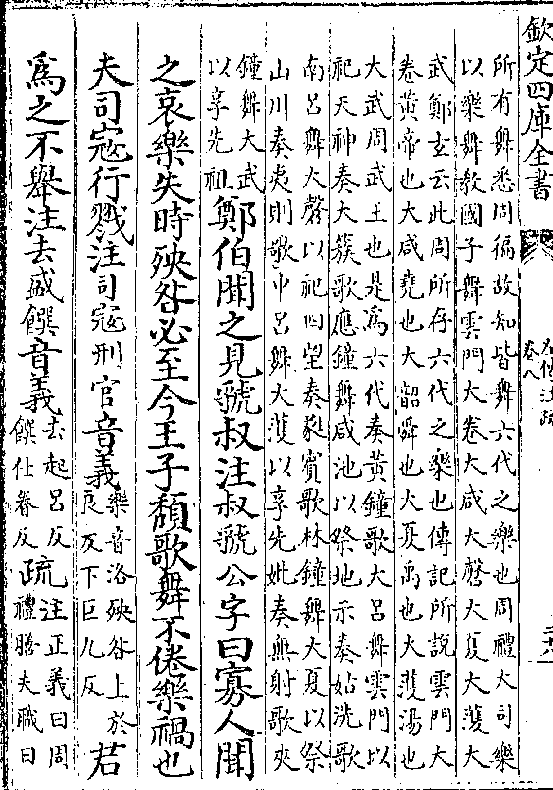 欽定四庫全書
左傳注疏
卷八
所有舞悉周徧故知皆舞六代之樂也周禮大司樂
以樂舞敎國子舞雲門大卷大咸大㲈大夏大濩大
武鄭𤣥云此周所存六代之樂也傳記所說雲門大
卷黃帝也大咸堯也大韶舜也大夏禹也大濩湯也
大武周武王也是爲六代奏黃鐘歌大呂舞雲門以
祀天神奏大簇歌應鐘舞咸池以祭地示奏姑洗歌
南呂舞大㲈以祀四望奏蕤賓歌林鐘舞大夏以祭
山川奏夷則歌中呂舞大濩以享先妣奏無射歌夾
鐘舞大武
以享先祖
鄭伯聞之見虢叔注叔虢公字曰寡人聞
之哀樂失時殃咎必至今王子頽歌舞不倦樂禍也
夫司寇行戮注司寇刑官音義
樂音洛殃咎上於
良反下巨九反
君
爲之不舉注去盛饌音義
去起呂反
饌仕眷反
疏
注正義曰周
禮膳夫職曰